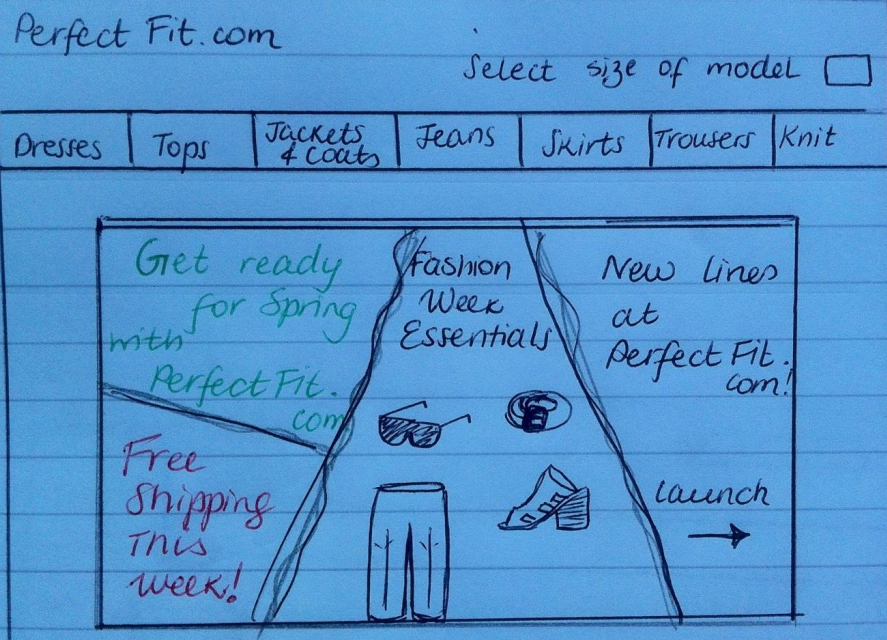 Perfect Fit.com
Select size of model
Dresses
Tops
Jackets
& Coats
Jeans
Skirts
Trousers
Knit
Get ready
for Spring
with
Perfect Fit.
com
Free
Shipping
This
Week!
Fashion
Week
Essentials
New lines
at
Perfect Fit.
com!
Launch